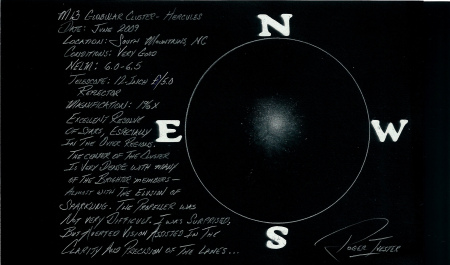 M13 Globular Cluster - Hercules
Date: June 2009
Location: South Mountains, NC
Conditions: Very Good
NELM: 6.0-6.5
Telescope: 12-Inch f/5.0
Reflector
Magnification: 196x
Excellent Resolve
Of Stars, Especially
In The Outer Regions.
The Center of The Cluster
Is Very Dense with many
of The Brighter members -
Almost with The Elusion of
Sparkling. The Propeller was
Not Very Difficult. I was Surprised,
But Averted Vision Assisted In The
Clarity And Precision of The Lanes...
N
E
W
S
Roger Ivester